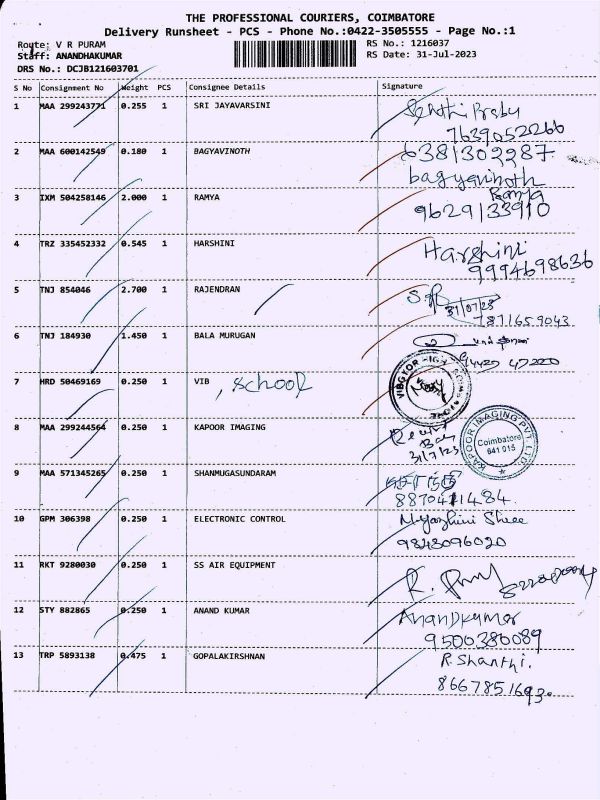 THE PROFESSIONAL COURIERS, COIMBATORE
Delivery Runsheet - PCS - Phone No.:0422-3505555 - Page No.:1
Route: V R PURAM
RS No.: 1216037
Staff: ANANDHAKUMAR
RS Date: 31-Jul-2023
DRS No.: DCJB121603701
S No Consignment No Weight PCS Consignee Details Signature
1 MAA 299243771 0.255 1 SRI JAYAVARSINI
7639052266
2 MAA 600142549 0.180 1 BAGYAVINOTH 6381302287
bagyavinoth
3 IXM 504258146 2.000 1 RAMYA Ramya
9629133910
4 TRZ 335452332 0.545 1 HARSHINI Harshini
9994698636
5 TNJ 854046 2.700 1 RAJENDRAN
31/07/23
7871659043
6 TNJ 184930 1.450 1 BALA MURUGAN
94427 47220
7 HRD 50469169 0.250 1 VIB , School
8 MAA 299244564 0.250 1 KAPOOR IMAGING
31/7/23
KAPOOR IMAGING PVT. LTD.
Coimbatore
641 015
9 MAA 571345265 0.250 1 SHANMUGASUNDARAM
8870411484.
10 GPM 306398 0.250 1 ELECTRONIC CONTROL M.yazhini Shree
9843096020
11 RKT 9280030 0.250 1 SS AIR EQUIPMENT
12 STY 882865 0.250 1 ANAND KUMAR AnanDkumar
9500380089
13 TRP 5893138 0.475 1 GOPALAKIRSHNAN R. Shanthi.
8667851693.